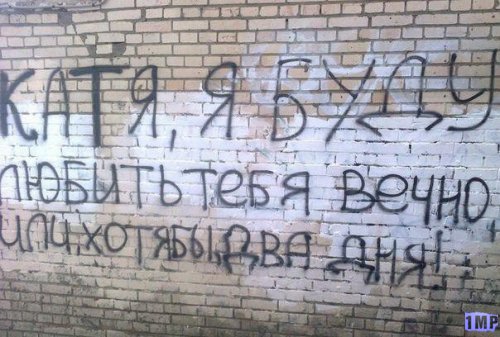 КАТЯ, Я БУДУ
ЛЮБИТЬ ТЕБЯ ВЕЧНО,
ИЛИ, ХОТЯБЫ, ДВА ДНЯ!
1MP